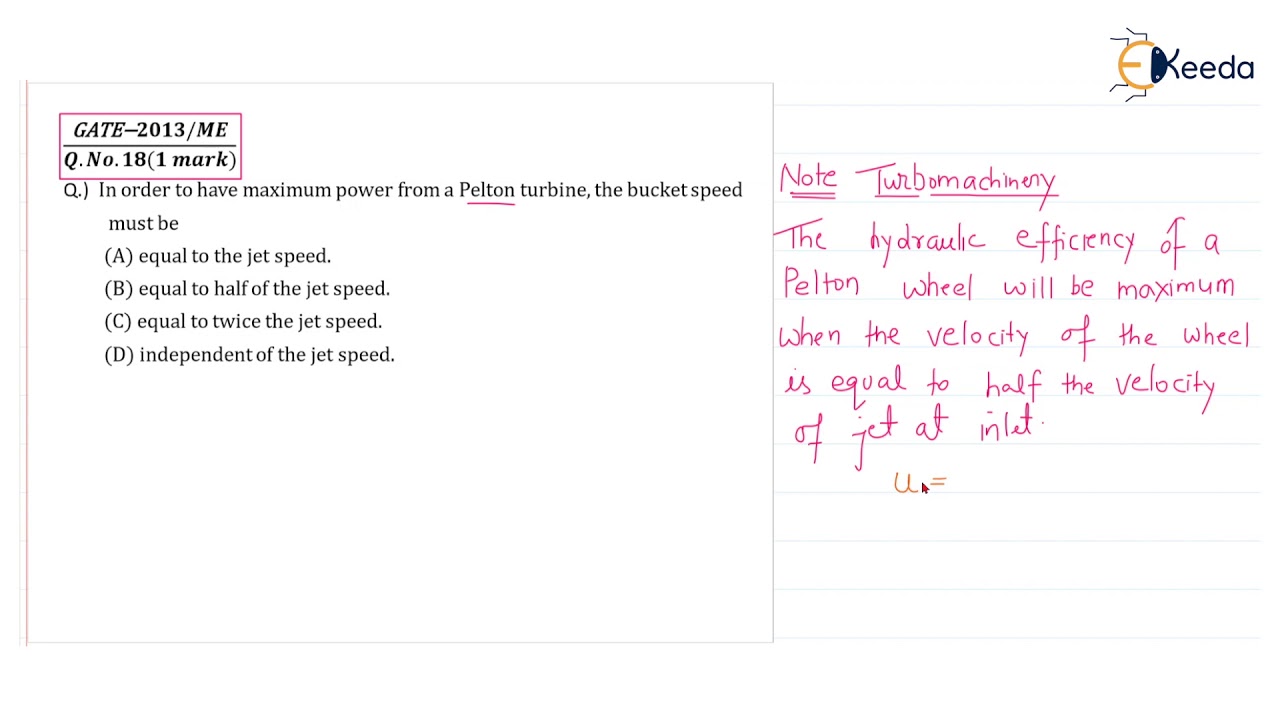 EKeeda
GATE–2013/ME
Q.No.18(1 mark)
Q.) In order to have maximum power from a Pelton turbine, the bucket speed
must be
(A) equal to the jet speed.
(B) equal to half of the jet speed.
(C) equal to twice the jet speed.
(D) independent of the jet speed.
Note Turbomachinery
The hydraulic efficiency of a
Pelton wheel will be maximum
when the velocity of the wheel
is equal to half the velocity
of jet at inlet.
u =